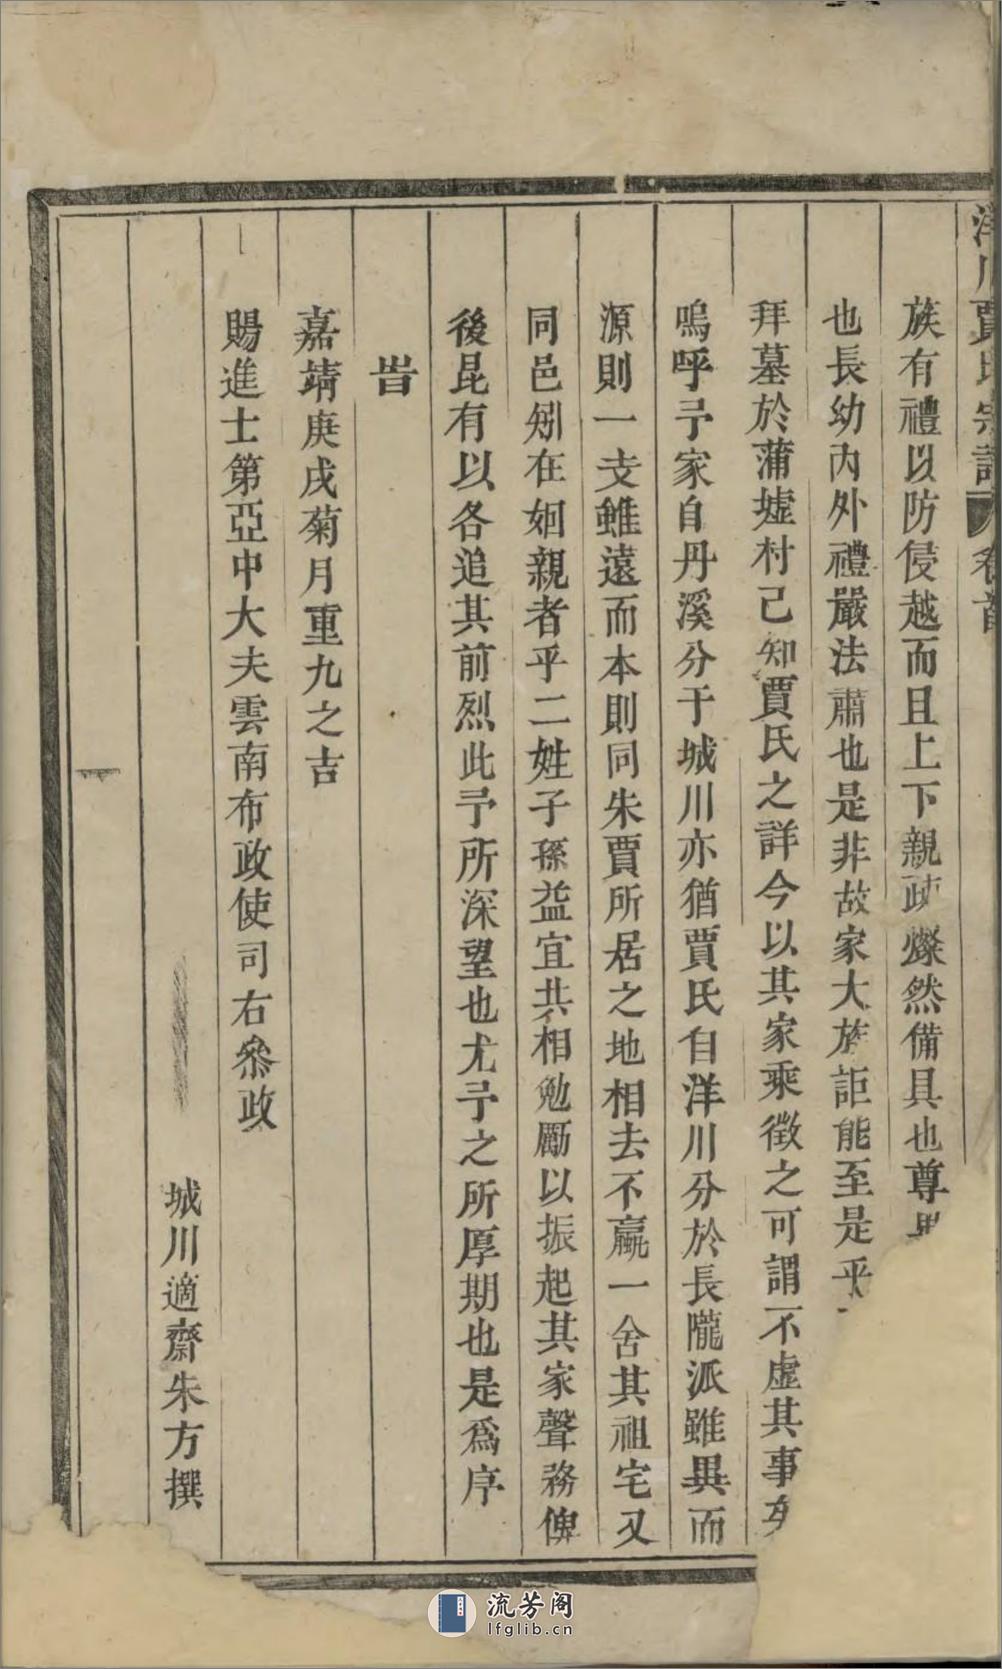 洋川賈氏宗譜 卷首
族有禮以防侵越而且上下親疎燦然備具也尊
也長幼內外禮嚴法肅也是非故家大族詎能至是乎
拜墓於蒲墟村已知賈氏之詳今以其家乘徵之可謂不虛其事矣
嗚呼予家自丹溪分于城川亦猶賈氏自洋川分於長隴派雖異而
源則一支雖遠而本則同朱賈所居之地相去不贏一舍其祖宅又
同邑矧在姻親者乎二姓子孫益宜共相勉勵以振起其家聲務俾
後昆有以各追其前烈此予所深望也尤予之所厚期也是爲序
旹
嘉靖庚戌菊月重九之吉
賜進士第亞中大夫雲南布政使司右叅政
城川適齋朱方撰
流芳阁
lfglib.cn